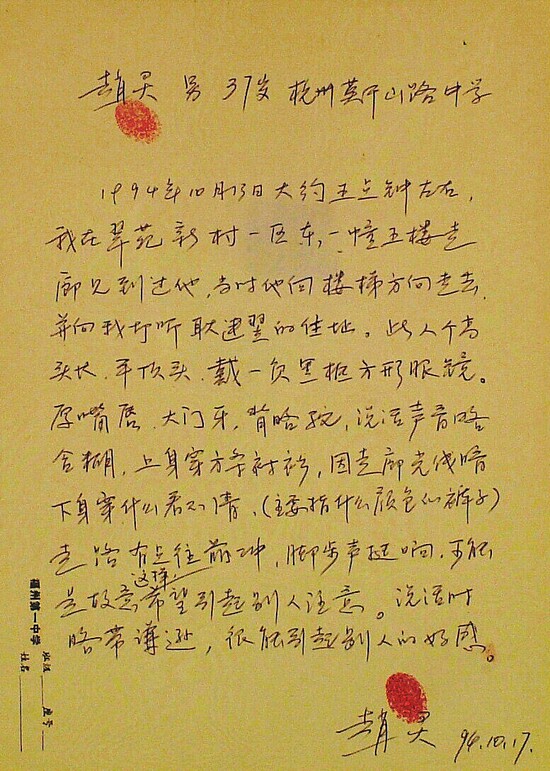 赵灵 男 37岁 杭州莫干山路中学
1994年10月13日大约五点钟左右,
我在翠苑新村一区东,一幢五楼走
廊见到过他,当时他向楼梯方向走去,
并向我打听耿建翌的住址。此人个高
头长、平顶头、戴一负黑框方形眼镜。
厚嘴唇、大门牙,背略驼,说话声音略
含糊,上身穿方条衬衫,因走廊光线暗
下身穿什么看不清,(主要指什么颜色的裤子)
走路有点往前冲,脚步声挺响,可能
是故意这样希望引起别人注意。说话时
略带谦逊,很能引起别人的好感。
赵灵 94.10.17.
福州第一中学 班级 座号
姓名